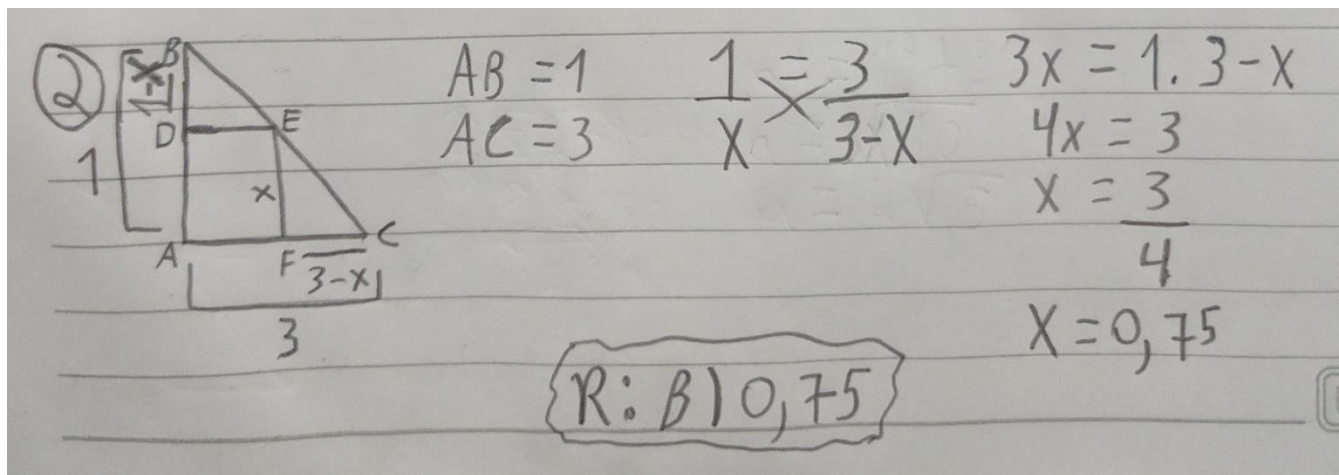 2
B
1-x
D
E
1
x
A
F
C
3-x
3
AB = 1
AC = 3
1/x = 3/3-x
3x = 1.3-x
4x = 3
x = 3/4
x = 0,75
R: B) 0,75